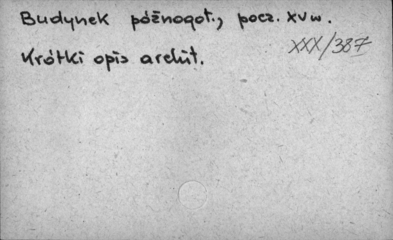 Budynek późnogot., pocz. XV w.
XXX/387
Krótki opis archit.